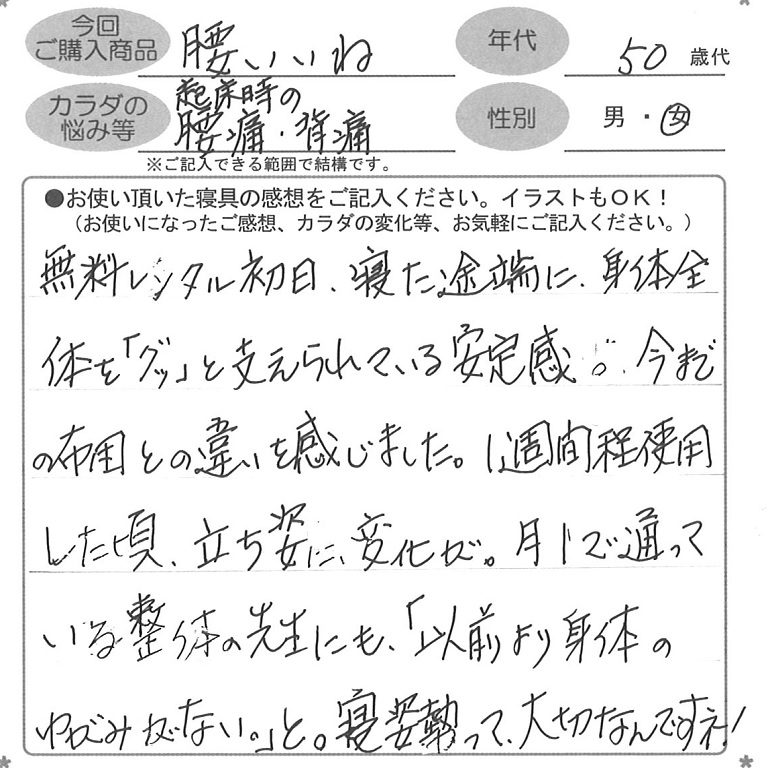 今回
ご購入商品
腰いいね
年代
50 歳代
カラダの
悩み等
起床時の
腰痛・背痛
性別
男・女
※ご記入できる範囲で結構です。
●お使い頂いた寝具の感想をご記入ください。イラストもOK!
(お使いになったご感想、カラダの変化等、お気軽にご記入ください。)
無料レンタル初日、寝た途端に、身体全
体を「グッ」と支えられている安定感。今まで
の布団との違いを感じました。1週間程使用
した頃、立ち姿に、変化が。月1で通って
いる整体の先生にも、「以前より身体の
ゆがみがない。」と。寝姿勢って、大切なんですネ!